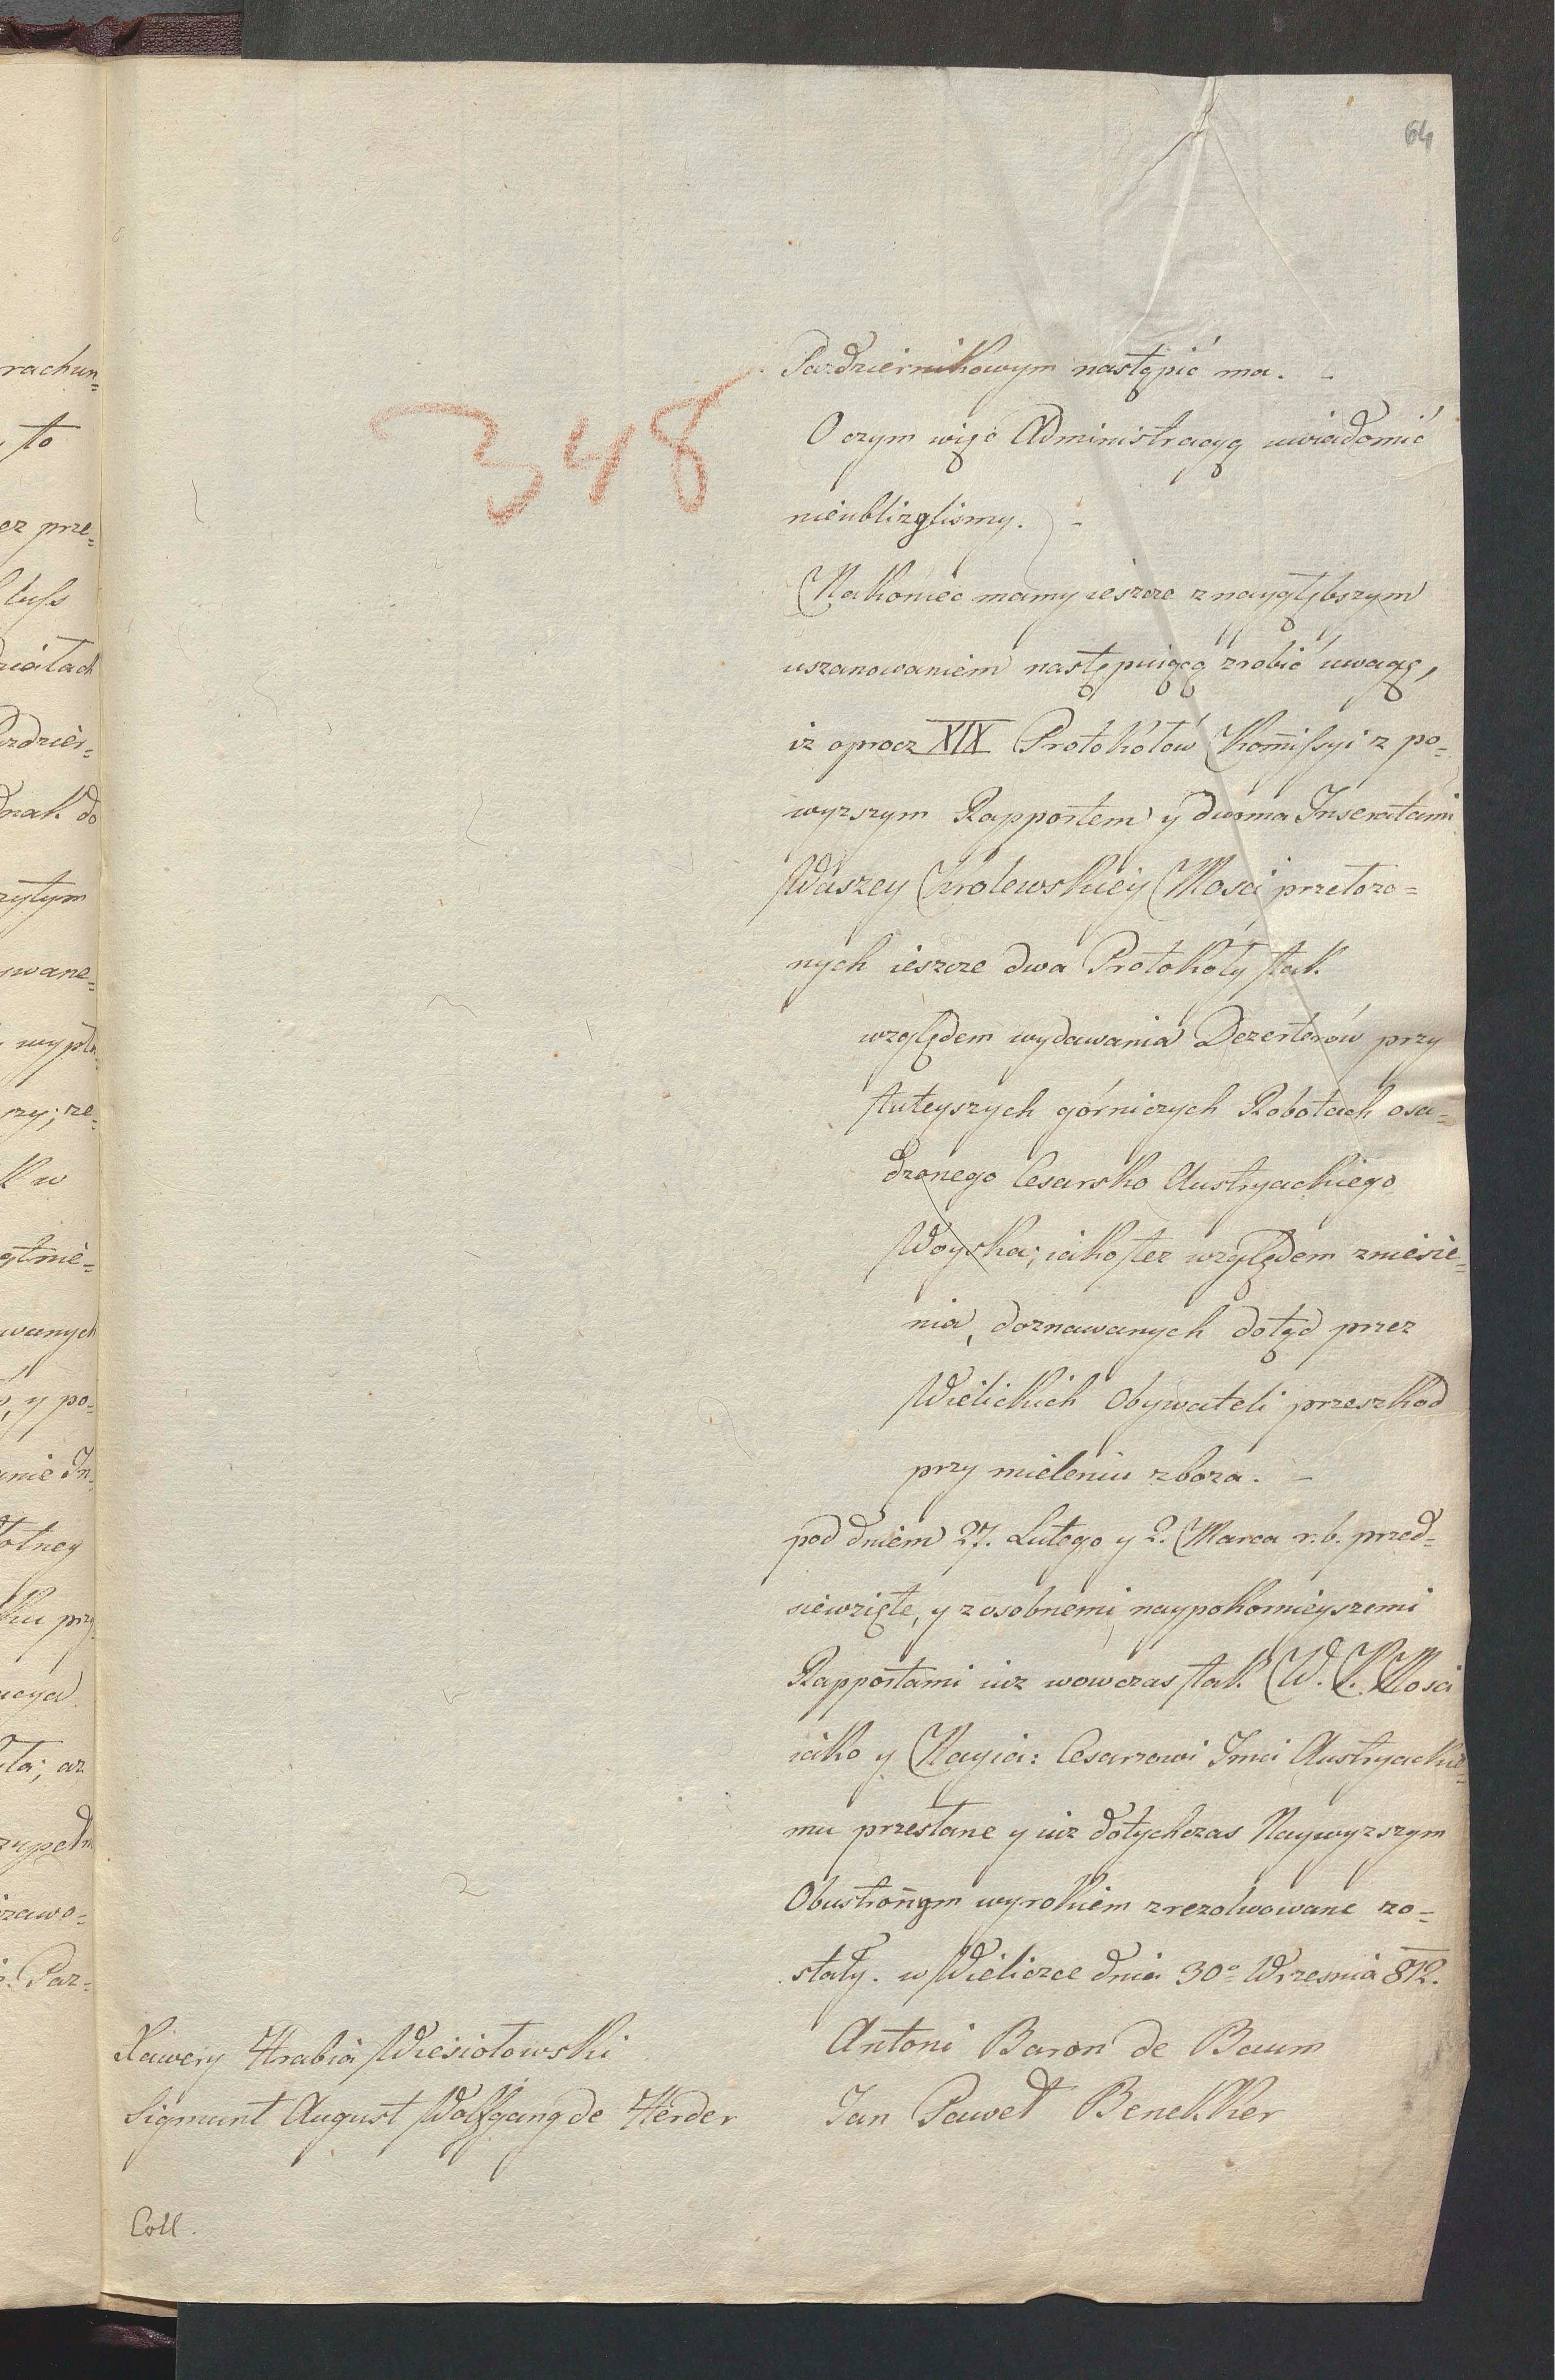 64
348
Pazdziernikowym nastąpić ma. -
O czym więc Administracyą uwiadomić
nieubliżyliśmy. -
Nakoniec mamy ieszcze z naygłębszym
uszanowaniem następuiącą zrobić uwagę,
iż oprocz XIX Protokółów Kom̃issyi z po=
wyzszym Rapportem y dwoma Inseratami
Waszey Królewskiey Mości przełożo=
nych ieszcze dwa Protokoły tak
względem wydawania Dezerterów przy
tuteyszych górniczych Robotach osa=
dzonego Cesarsko Austryackiego
Woyska; iako tez względem zniesie=
nia, doznawanych dotąd przez
Wielickich Obywateli przeszkod
przy mieleniu zboza. -
pod dniem 27. Lutego y 2. Marca r. b. przed=
siewzięte, y z osobnemi naypokornieyszemi
Rapportami iuz wowczas tak W. K. Mosci
iako y Nayia: Cesarzowi Jmci Austryackie=
mu przesłane y iuz dotychczas Naywyzszym
Obustroñym wyrokiem zrezolwowane zo=
stały. w Wieliczce dnia 30º Wrzesnia 812.
Xawery Hrabia Wiesiołowski
Antoni Baron de Baum
Sigmunt August Wolfgang de Herder
Jan Paweł Benekker
Coll.
rachun=
to
ez prze=
dnak do
zytym
wane=
zy; ze=
k w
wanych
y po=
łotney
ku przy
zawo=
Paz=